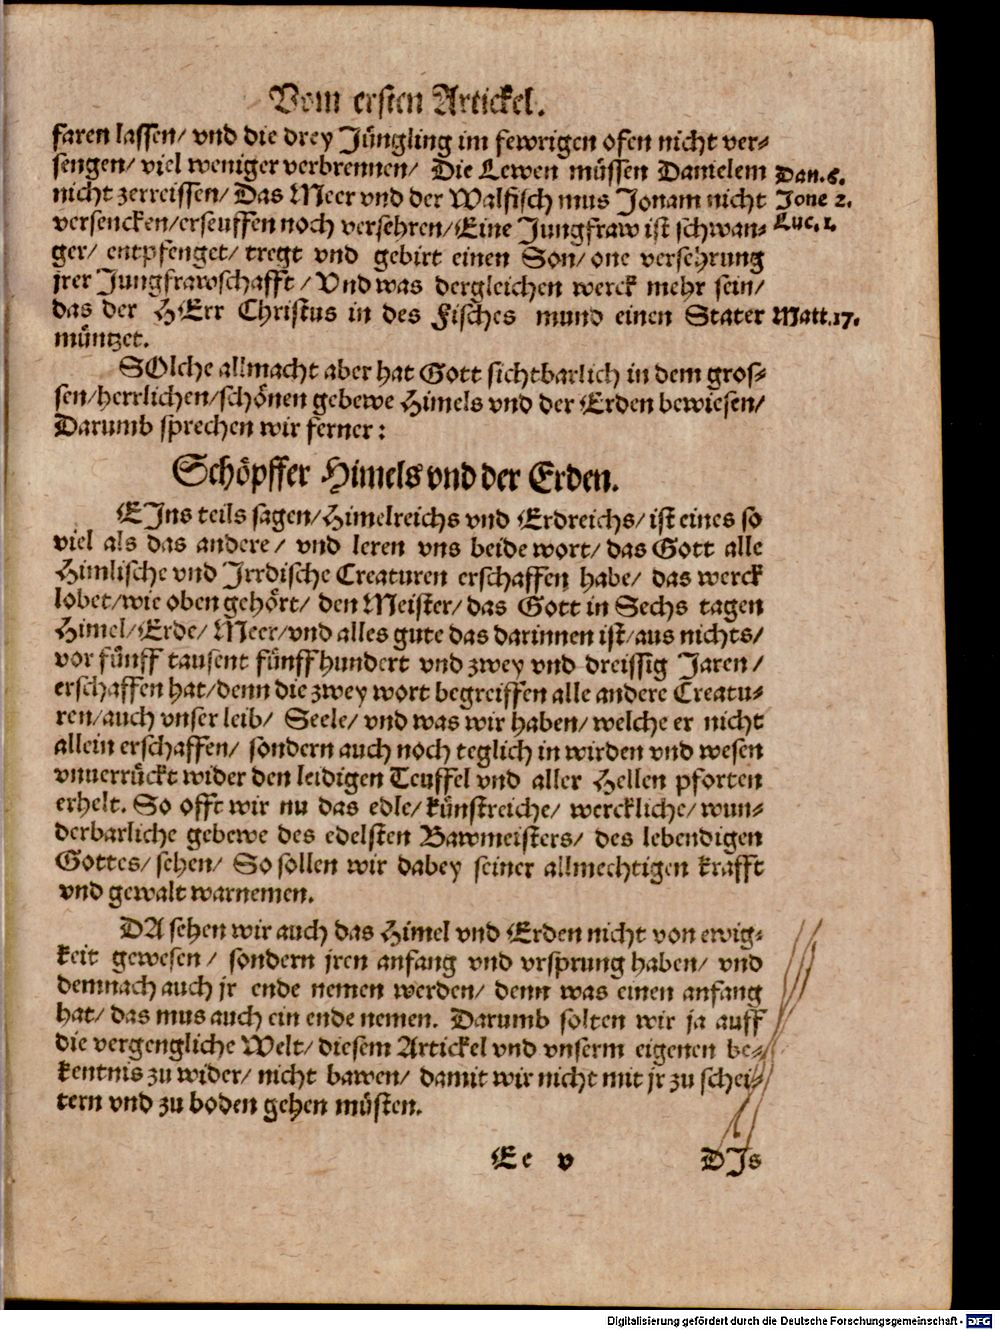 Vom ersten Artickel.
faren lassen/ vnd die drey Jüngling im fewrigen ofen nicht ver-
sengen/ viel weniger verbrennen/ Die Lewen müssen Danielem Dan. 6.
nicht zerreissen/ Das Meer vnd der Walfisch mus Jonam nicht Jone 2.
versencken/ erseuffen noch versehren/ Eine Jungfraw ist schwan- Luc. 1.
ger/ entpfenget/ tregt vnd gebirt einen Son/ one versehrung
jrer Jungfrawschafft/ Vnd was dergleichen werck mehr sein/
das der HErr Christus in des Fisches mund einen Stater Matt. 17.
müntzet.
SOlche allmacht aber hat Gott sichtbarlich in dem gros-
sen/ herrlichen/ schönen gebewe Himels vnd der Erden bewiesen/
Darumb sprechen wir ferner:
Schöpffer Himels vnd der Erden.
EJns teils sagen/ Himelreichs vnd Erdreichs/ ist eines so
viel als das andere/ vnd leren vns beide wort/ das Gott alle
Himlische vnd Jrrdische Creaturen erschaffen habe/ das werck
lobet/ wie oben gehört/ den Meister/ das Gott in Sechs tagen
Himel/ Erde/ Meer/ vnd alles gute das darinnen ist/ aus nichts/
vor fünff tausent fünffhundert vnd zwey vnd dreissig Jaren/
erschaffen hat/ denn die zwey wort begreiffen alle andere Creatu-
ren/ auch vnser leib/ Seele/ vnd was wir haben/ welche er nicht
allein erschaffen/ sondern auch noch teglich in wirden vnd wesen
vnuerrückt wider den leidigen Teuffel vnd aller Hellen pforten
erhelt. So offt wir nu das edle/ künstreiche/ werckliche/ wun-
derbarliche gebewe des edelsten Bawmeisters/ des lebendigen
Gottes/ sehen/ So sollen wir dabey seiner allmechtigen krafft
vnd gewalt warnemen.
DA sehen wir auch das Himel vnd Erden nicht von ewig-
keit gewesen/ sondern jren anfang vnd vrsprung haben/ vnd
demnach auch jr ende nemen werden/ denn was einen anfang
hat/ das mus auch ein ende nemen. Darumb solten wir ja auff
die vergengliche Welt/ diesem Artickel vnd vnserm eigenen be-
kentnis zu wider/ nicht bawen/ damit wir nicht mit jr zu schei-
tern vnd zu boden gehen müsten.
Ee v DJs
Digitalisierung gefördert durch die Deutsche Forschungsgemeinschaft - DFG